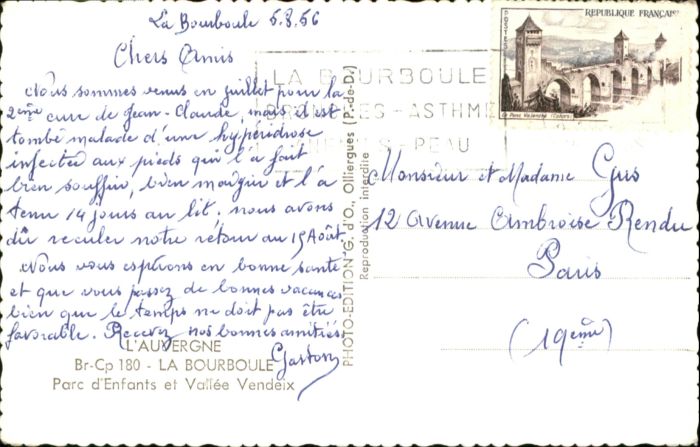 La Bourboule 5.8.56
Chers Amis
Nous sommes venus en juillet pour la
2ème cure de Jean-Claude, mais il est
tombé malade d'une hyperidrose
infectée aux pieds qui l'a fait
bien souffrir, bien maigrir et l'a
tenu 14 jours au lit. nous avons
dû reculer notre retour au 15 Août
Nous vous espérons en bonne santé
et que vous passez de bonnes vacances
bien que le temps ne doit pas être
favorable. Recevez nos bonnes amitiés
Gaston
L'AUVERGNE
Br-Cp 180 - LA BOURBOULE
Parc d'Enfants et Vallée Vendeix
PHOTO-EDITION "G. d'O., Olliergues (P.-de-D.)
Reproduction interdite
LA BOURBOULE
- ASTHME
- PEAU
REPUBLIQUE FRANÇAISE
POSTES
Le Pont Valentré (Cahors)
Monsieur et Madame Gus
12 Avenue Ambroise Rendu
Paris
(19ème)